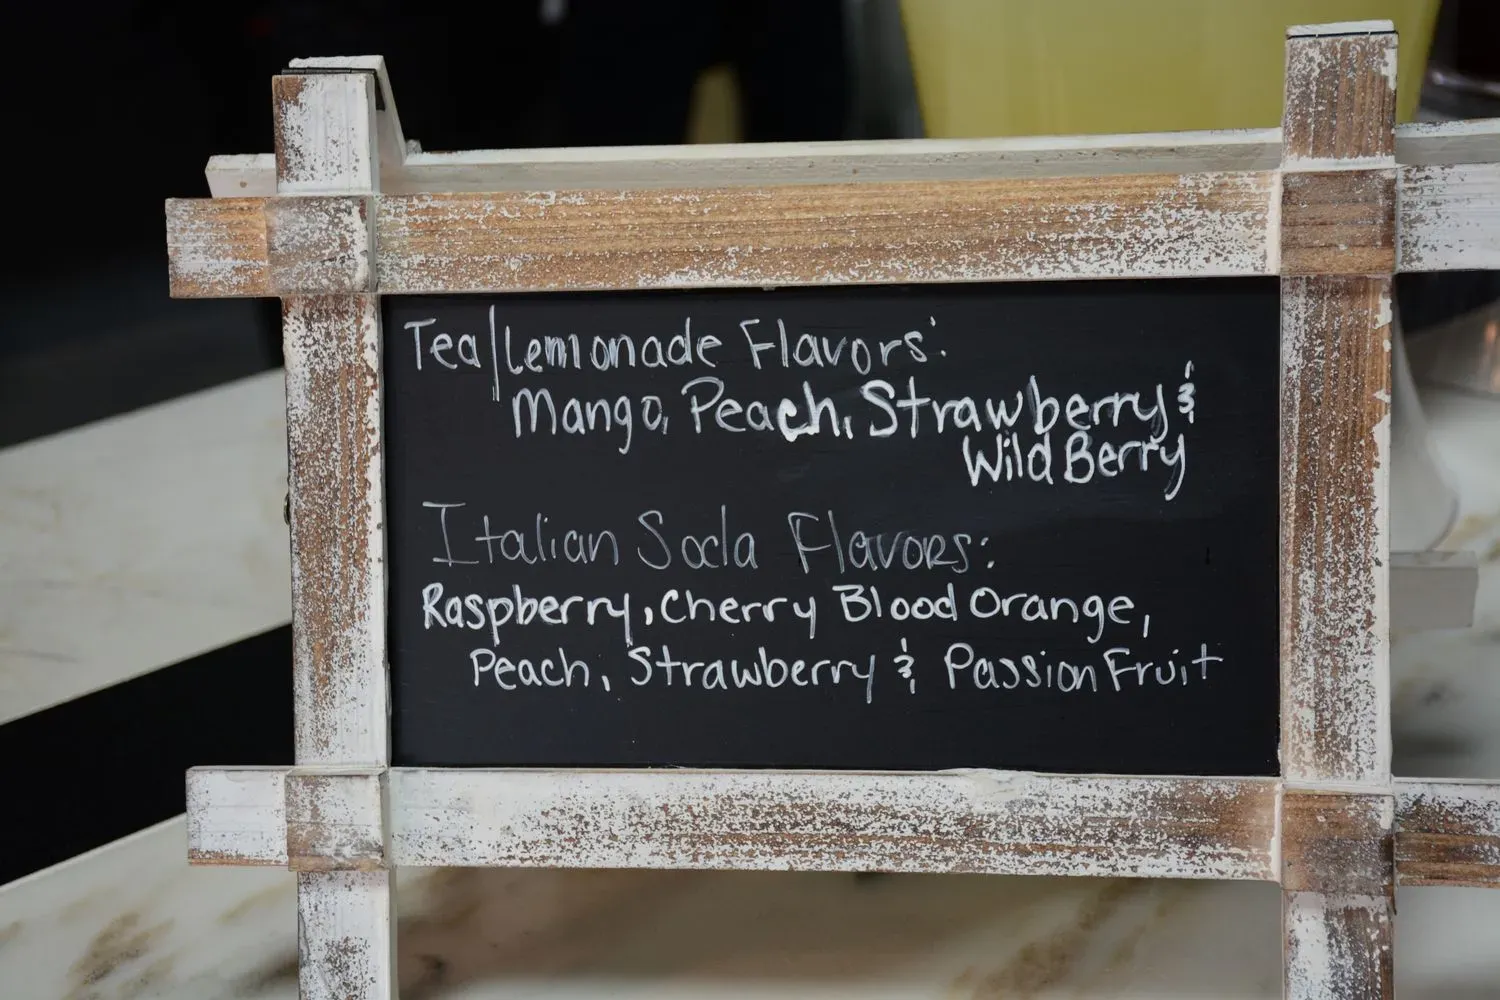 Tea/Lemonade Flavors:
Mango, Peach, Strawberry &
Wild Berry
Italian Soda Flavors:
Raspberry, Cherry Blood Orange,
Peach, Strawberry & Passion Fruit